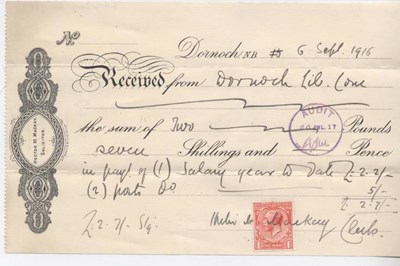 No
Dornoch N.B. 6 Sept. 1916
Received from Dornoch Lib. Com
AUDIT
the sum of Two Pounds
seven Shillings and Pence
in payt. of (1) Salary year to date £2-2-/-
(2) posts Do 5/-
£2-7/-
£2-7/-
Mackay
Clerk
HECTOR M. MACKAY
SOLICITOR